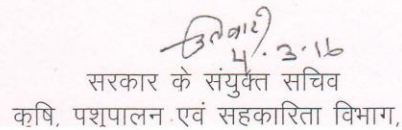 4.3.16
सरकार के संयुक्त सचिव
कृषि, पशुपालन एवं सहकारिता विभाग,